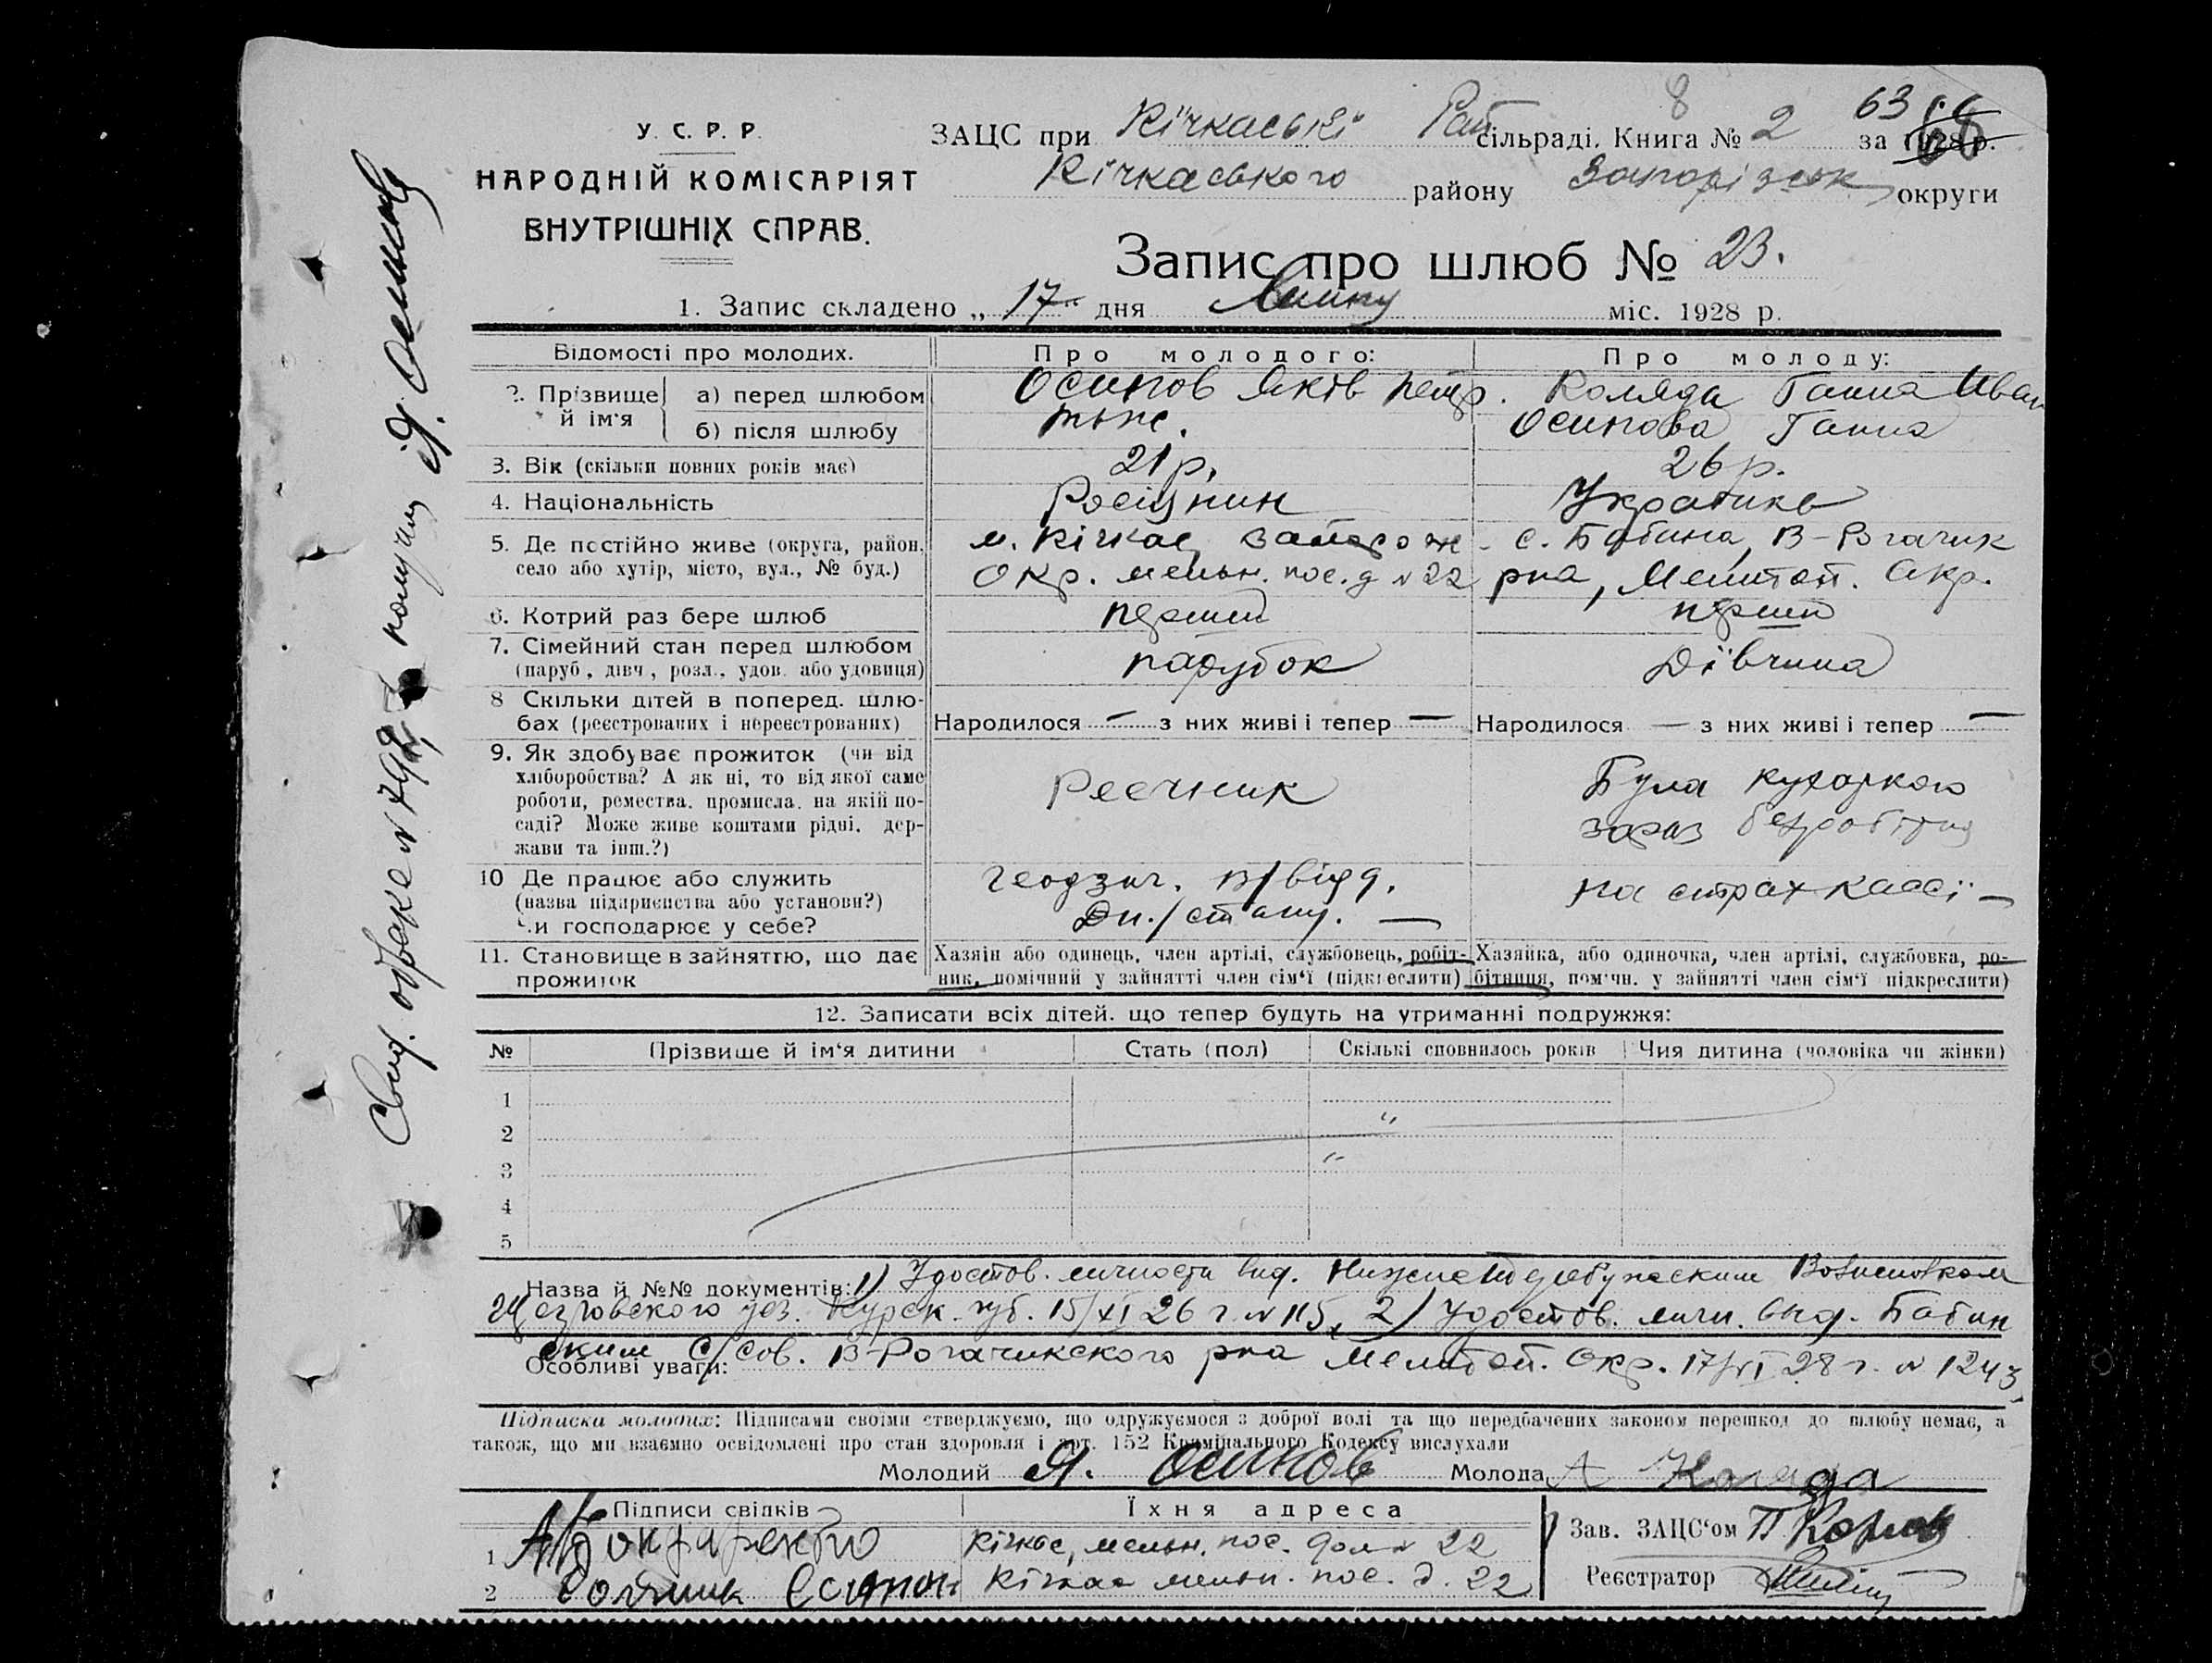 8
63
У. С. Р. Р.
НАРОДНІЙ КОМІСАРІЯТ
ВНУТРІШНІХ СПРАВ.
ЗАЦС при Кічкаські Рай сільраді. Книга № 2 за 1928 р.
Кічкаського району Запорізьк округи
Запис про шлюб № 23.
1. Запис складено „17“ дня Липня міс. 1928 р.
Відомості про молодих. Про молодого: Про молоду:
2. Прізвище й ім'я а) перед шлюбом Осипов Яків Петр. Коляда Ганна Иван
б) після шлюбу тьже. Осипова Ганна
3. Вік (скільки повних років має) 21 р. 26 р.
4. Національність Росіянин Українка
5. Де постійно живе (округа, район, м. Кічкас, Запорож. с. Бабина, В-Рогачик
село або хутір, місто, вул., № буд.) Окр. мельн. пос. д № 22 рна, Мелитоп. Окр.
6. Котрий раз бере шлюб перший перший
7. Сімейний стан перед шлюбом парубок Дівчина
(паруб., дівч., розл., удов. або удовиця)
8 Скільки дітей в поперед. шлю-
бах (реєстрованих і нереєстрованих) Народилося — з них живі і тепер — Народилося — з них живі і тепер —
9. Як здобуває прожиток (чи від
хліборобства? А як ні, то від якої саме Реечник Була кухаркою
роботи, ремества, промисла, на якій по-
саді? Може живе коштами рідні, дер- зараз безробітня
жави та інш.?)
10 Де працює або служить геодзич. в/відд. на страхкассі —
(назва підприємства або установи?) Дн./стану. —
Чи господарює у себе?
11. Становище в зайняттю, що дає Хазяїн або одинець, член артілі, службовець, робіт- Хазяйка, або одиночка, член артілі, службовка, ро-
прожиток ник, помічний у зайнятті член сім'ї (підкреслити) бітниця, помічн. у зайнятті член сім'ї підкреслити)
12. Записати всіх дітей, що тепер будуть на утриманні подружжя:
№ Прізвище й ім'я дитини Стать (пол) Скількі сповнилось років Чия дитина (чоловіка чи жінки)
1
2
3
4
5
Назва й №№ документів: 1) Удостов. личности выд.
уез. Курск. губ. 15/XI 26 г. № 115, 2) Удостов. личн. выд. Бабин
ским С/сов. В-Рогачикского рна Мелитоп. Окр. 17/VI 28 г. № 1243,
Особливі уваги:
Підписка молодих: Підписами своїми стверджуємо, що одружуємося з доброї волі та що передбачених законом перешкод до шлюбу немає, а
також, що ми взаємно освідомлені про стан здоровля і арт. 152 Кримінального Кодексу вислухали
Молодий Я. Осипов Молода А Коляда
Підписи свідків Їхня адреса
1 Кічкас, мельн. пос. дом № 22
2 Кічкас мельн. пос. д. 22
Зав. ЗАЦС'ом
Реєстратор
Свид. о браке № 792 получил Я. Осипов